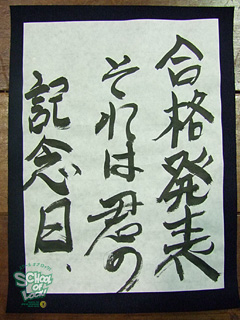 合格発表
それは君の
記念日、
SCHOOL
OF
LOCK!